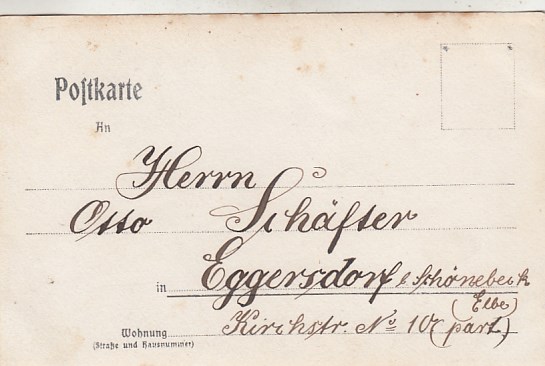 Postkarte
An
Herrn
Otto Schäfter
in Eggersdorf b. Schönebeck
(Elbe)
Wohnung Kirchstr. No 10 (part.)
(Straße und Hausnummer)